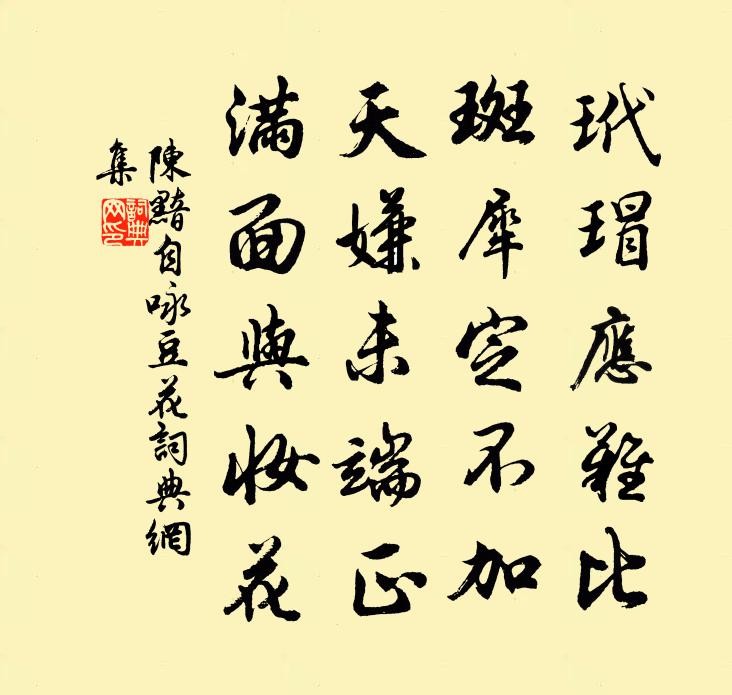 玳瑁應難比
斑犀定不加
天嫌未端正
滿面與妝花
陳黯自咏豆花詞典網
集
詞典
网印